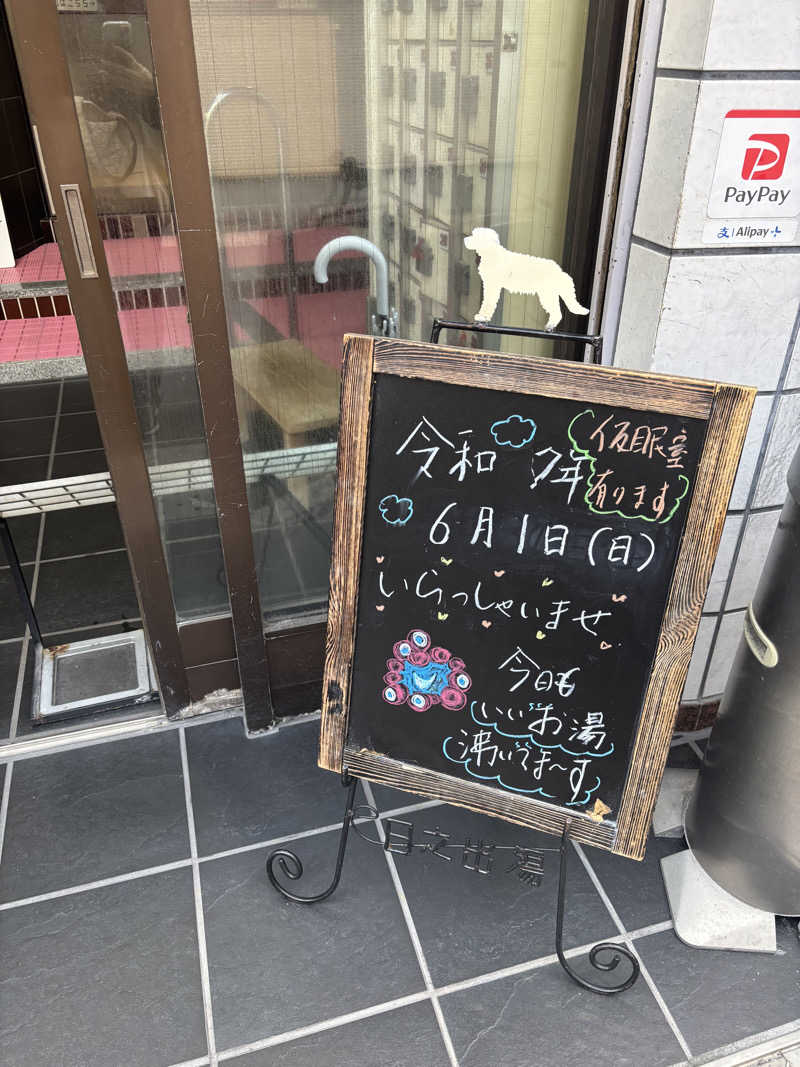 PayPay
支 | Alipay
令和 7年
仮眠室
有ります
6月1日(日)
いらっしゃいませ
今日も
いいお湯
沸いてま~す
日之出湯